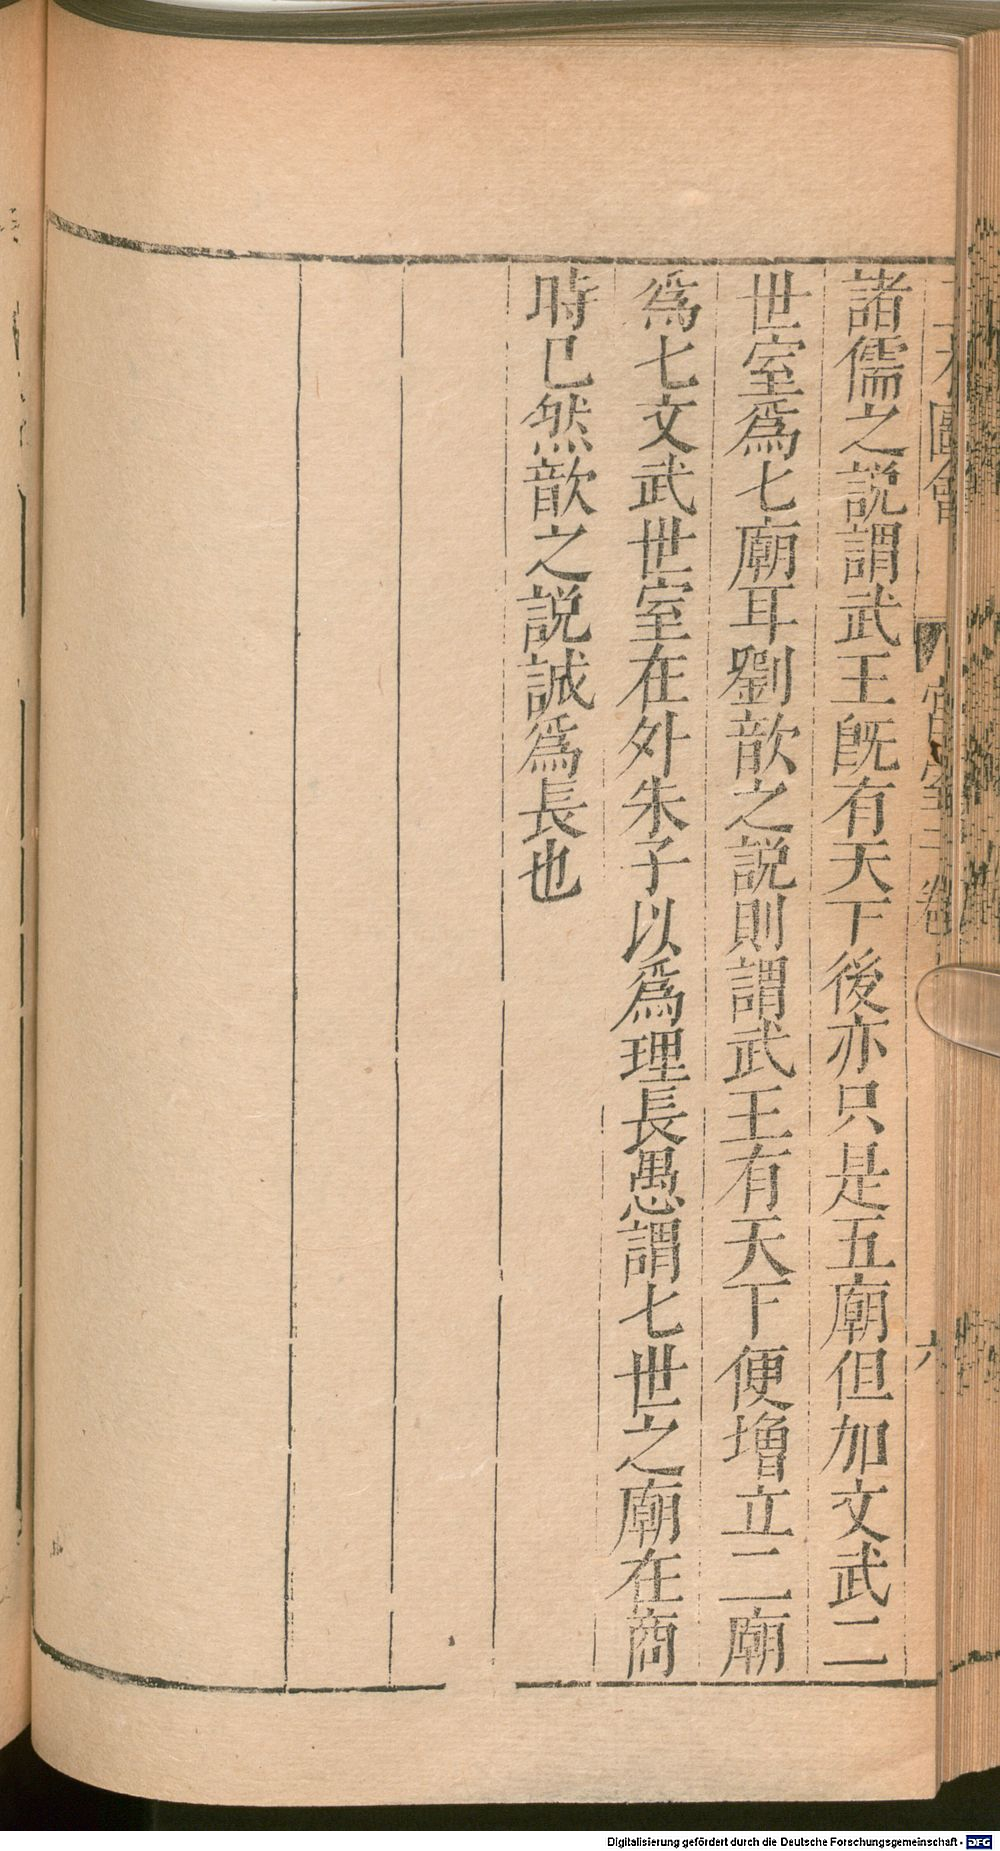 圖會
宫室三卷
六
諸儒之説謂武王旣有天下後亦只是五廟但加文武二
世室爲七廟耳劉歆之説則謂武王有天下便增立二廟
爲七文武世室在外朱子以爲理長愚謂七世之廟在商
時已然歆之説誠爲長也
Digitalisierung gefördert durch die Deutsche Forschungsgemeinschaft - DFG